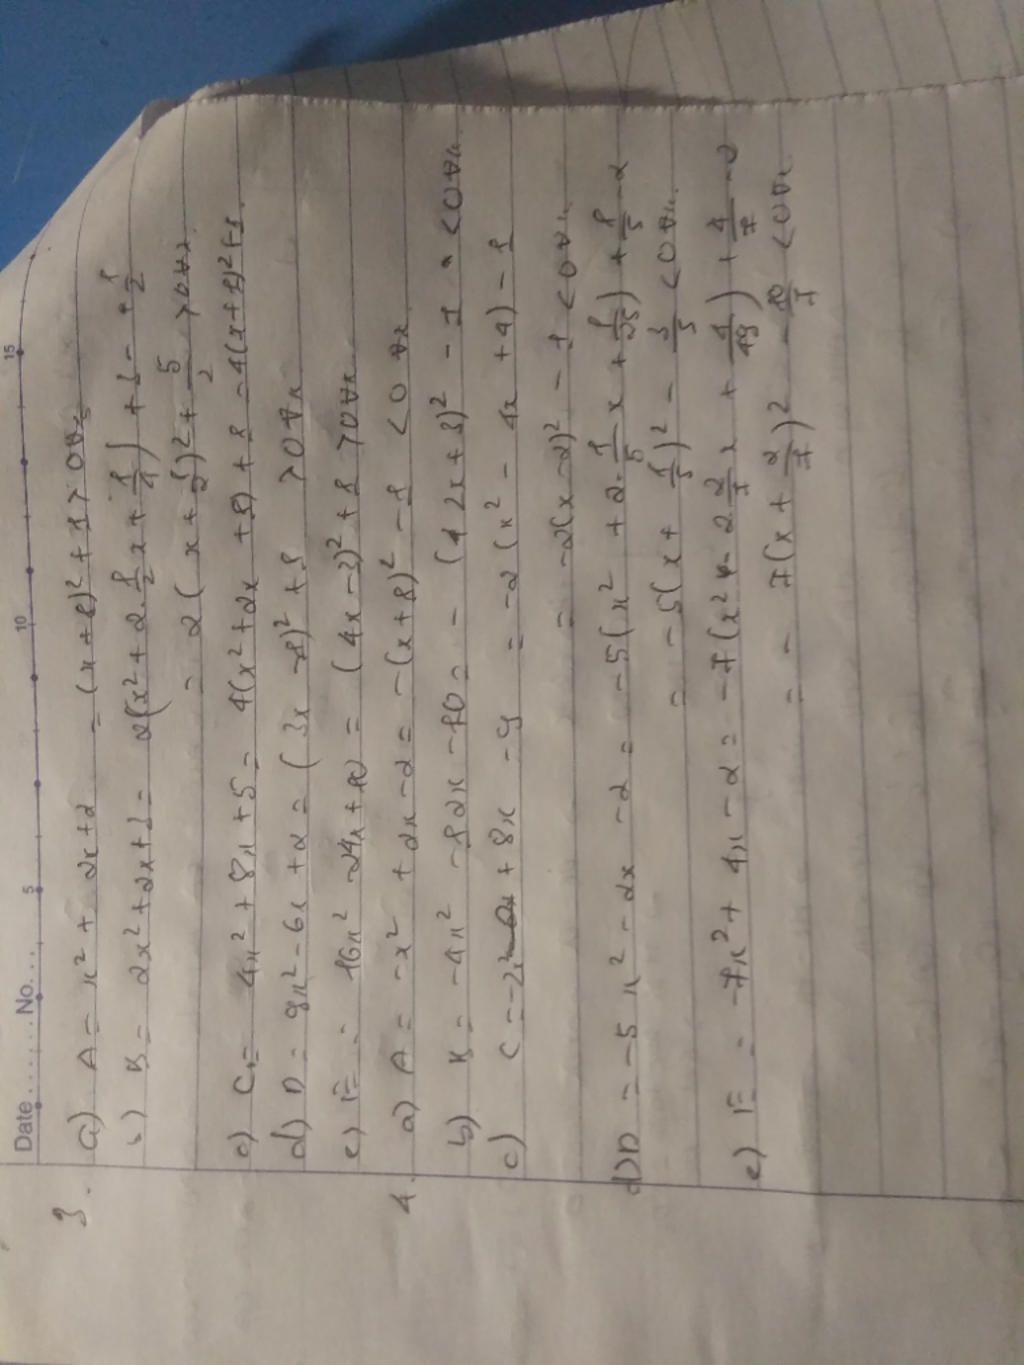 Date ...... No. ...
5 10 15
3. a) A = x² + 2x + 2 = (x + 1)² + 1 > 0 ∀x
b) B = 2x² + 2x + 3 = 2(x² + 2.1/2x + 1/4) + 3 - 1/2
= 2(x + 1/2)² + 5/2 > 0 ∀x
c) C = 4x² + 8x + 5 = 4(x² + 2x + 1) + 1 = 4(x + 1)² + 1.
d) D = 9x² - 6x + 2 = (3x - 1)² + 1 > 0 ∀x
e) E = 16x² - 24x + 10 = (4x - 3)² + 1 > 0 ∀x
4. a) A = -x² + 2x - 2 = -(x + 1)² - 1 < 0 ∀x
b) B = -4x² - 12x - 10 = -(2x + 3)² - 1 < 0 ∀x.
c) C = -2x² + 8x - 9 = -2(x² - 4x + 4) - 1
= -2(x - 2)² - 1 < 0 ∀x.
d) D = -5x² - 2x - 2 = -5(x² + 2.1/5x + 1/25) + 1/5 - 2
= -5(x + 1/5)² - 3/5 < 0 ∀x.
e) E = -7x² + 4x - 2 = -7(x² - 2.2/7x + 4/49) + 4/7 - 2
= -7(x + 2/7)² - 10/7 < 0 ∀x